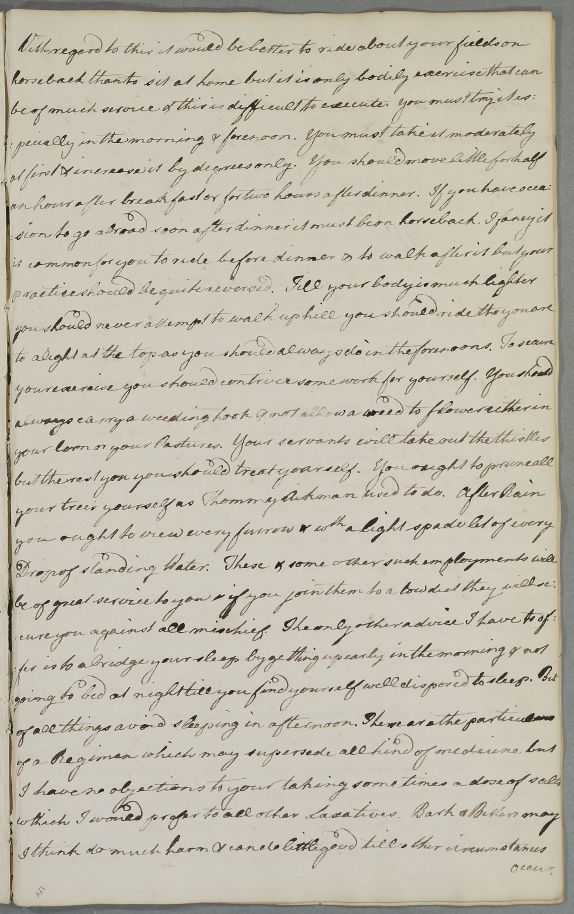 With regard to this it would be better to ride about your fields on
horseback than to sit at home but it is only bodily exercise that can
be of much service & this is difficult to execute. you must try it es:
:pecially in the morning & forenoon. You must take it moderately
at first & increase it by degrees only. You should move little for half
an hour after breakfast or for two hours after dinner. If you have occa:
:sion to go abroad soon after dinner it must be on horseback. I fancy it
is common for you to ride before dinner & to walk after it but your
practice should be quite reversed. Till your body is much lighter
you should never attempt to walk up hill you should ride tho you are
to alight at the top as you should always do in the forenoons. To secure
your exercise you should contrive some work for yourself. You should
always carry a weeding hook & not allow a weed to flower either in
your Corn or your Pastures. Your servants will take out the thistles
but the rest you you should treat yourself. You ought to prune all
your trees yourself as Thommy Rikman used to do. After Rain
you ought to view every furrow & wth a light spade let of every
Drop of standing Water. These & some other such employments will
be of great service to you & if you join them to a low diet they will se:
cure you against all mischief. The only other advice I have to of:
fer is to abridge your sleep by getting up early in the morning & not
going to bed at night till you find yourself well disposed to sleep. But
of all things avoid sleeping in afternoon. These are the particulars
of a Regimen which may supersede all kind of medicine but
I have no objections to your taking some times a dose of salts
which I would prefer to all other Laxatives. Bark & Bitters may
I think do much harm & can do little good till other circumstances
occur.